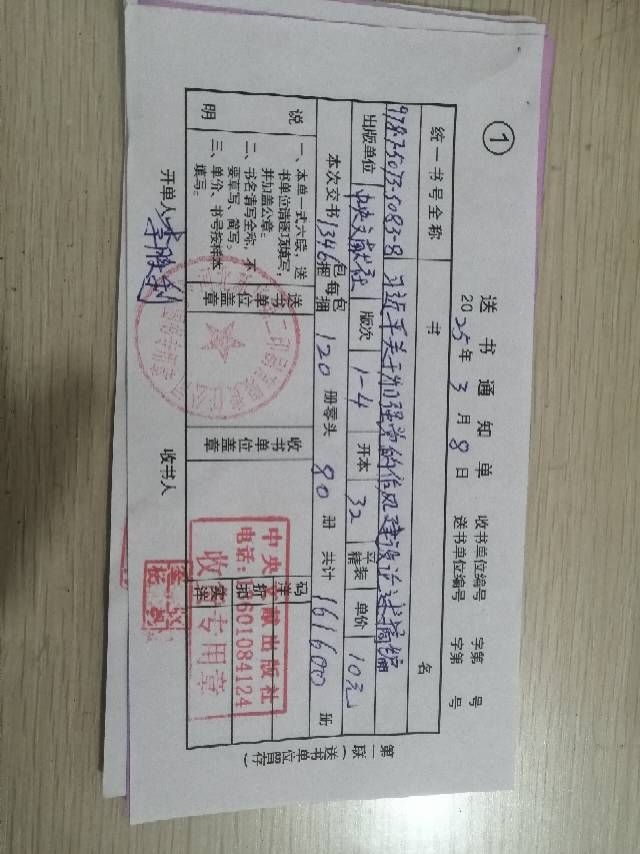 ①
送书通知单
2025年3月8日
收书单位编号 字第 号
送书单位编号 字第 号
统一书号全称 书 名
978-7-5073-5083-8 习近平关于加强党的作风建设论述摘编
出版单位 中央文献社 版次 1-4 开本 32 平装 精 单价 10元
本次交书 1346 包 捆 每包 捆 120 册 零头 80 册 共计 161600 册
说明
一、本单一式六段，送书单位请逐项填写，并加盖公章；
二、书名请写全称，不要草写、简写；
三、单价、书号按样本填写；
送书单位盖章
收书单位盖章
码洋
折扣
实洋
中央文献出版社
收书专用章
开单人 李胜利
收书人
第一联（送书单位留存）